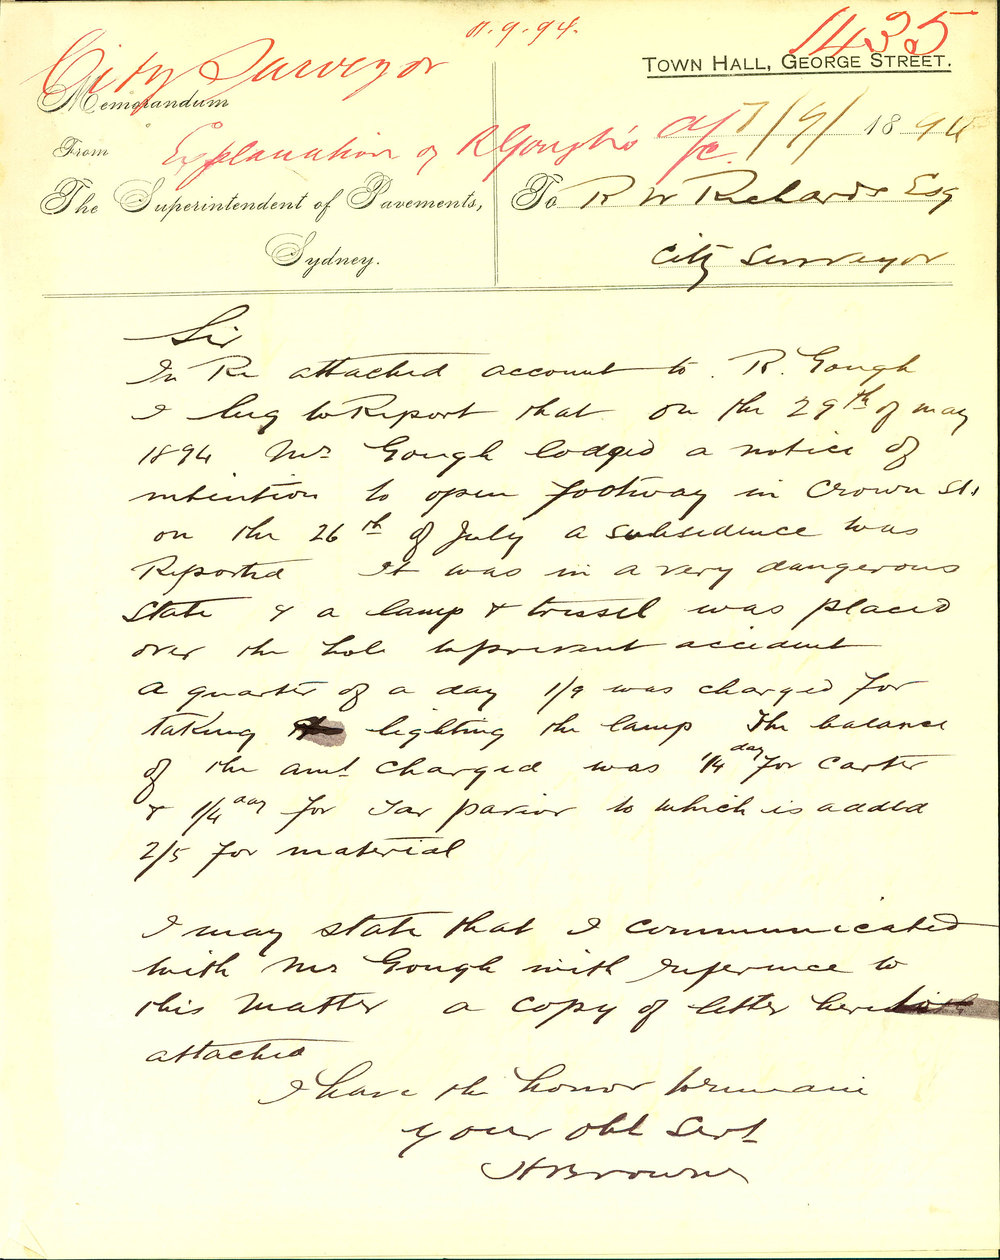 11.9.94.
1435
City Surveyor
TOWN HALL, GEORGE STREET.
Memorandum
7/9/ 1894
From
Explanation of R Gough's a/c.
The Superintendent of Pavements,
To R W Richards Esq
Sydney.
City Surveyor
Sir
In Re attached account to R. Gough
I beg to Report that on the 29th of may
1894 Mr Gough lodged a notice of
intention to open footway in Crown St.
on the 26th of July a subsidence was
Reported It was in a very dangerous
State & a lamp & tressel was placed
over the hole to prevent accident
A quarter of a day 1/9 was charged for
taking lighting the lamp The balance
of the amt charged was 1/4 day for Carter
& 1/4 day for Tar pavior to which is added
2/5 for material
I may state that I communicated
with Mr Gough with reference to
this Matter a copy of letter herewith
attached
I have the honor to remain
your obt Servt
H Browne